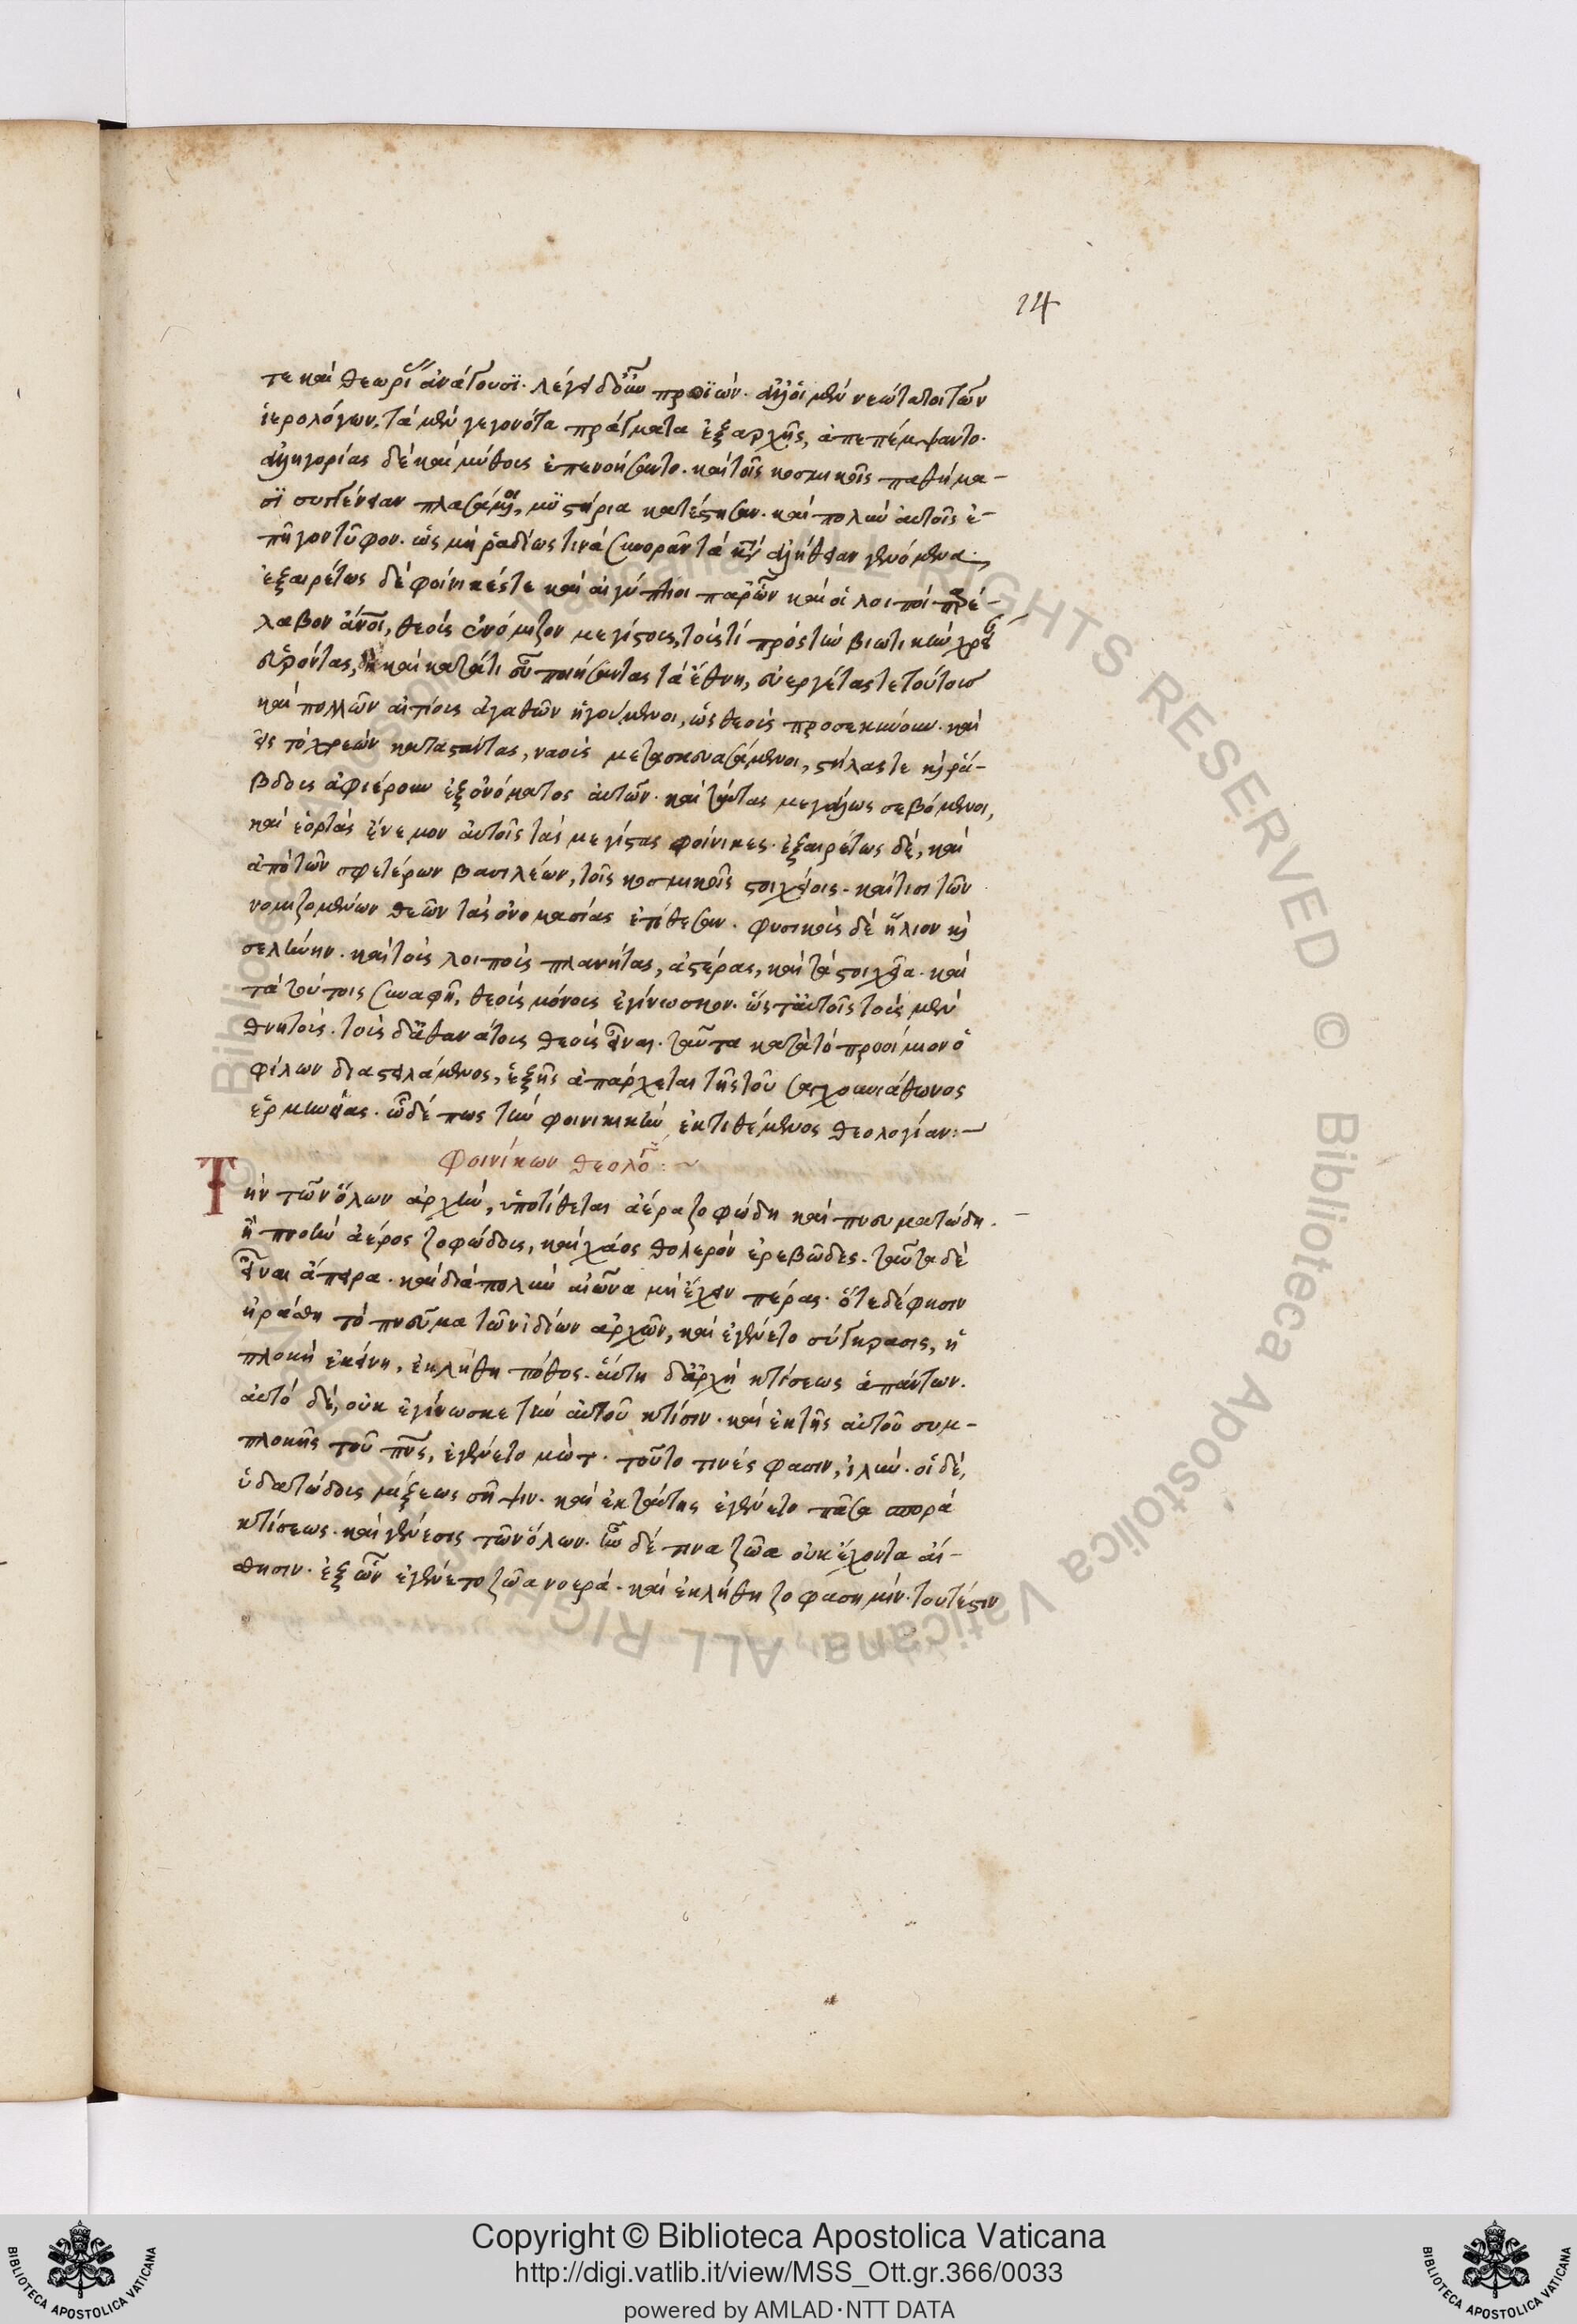 14
τε καὶ θεωρί ἀνάγουσϊ. λέγει δ' οὖν προϊών. ἀλλ' οἱ μὲν νεώτατοι τῶν
ἱερολόγων, τὰ μὲν γεγονότα πράγματα ἐξαρχῆς, ἀπεπέμψαντο.
ἀλληγορίας δὲ καὶ μύθους ἐπενοήσαντο. καὶ τοῖς κοσμικοῖς παθήμα-
σϊ συγγένειαν πλασάμοι, μϋστήρια κατέστησαν. καὶ πολὺν αὐτοῖς ἐ-
πῆγον τῦφον. ὡς μὴ ῥαδίως τινὰ συνορᾶν τὰ κτ' ἀλήθειαν γενόμενα.
ἐξαιρέτως δὲ φοίνικές τε καὶ αἰγύπτιοι παρ' ὧν καὶ οἱ λοιποὶ παρέ-
λαβον ἄνοι, θεοὺς ἐνόμιζον μεγίστους, τοὺς τὶ πρὸς τὴν βιωτικὴν χρεί
εὑρόντας, ἢ καὶ κατά τι εὖ ποιήσαντας τὰ ἔθνη, εὐεργέτας τε τούτους
καὶ πολλῶν αἰτίους ἀγαθῶν ἡγούμενοι, ὡς θεοὺς προσεκύνουν. καὶ
εἰς τὸ χρεὼν καταστάντας, ναοὺς μετασκευασάμενοι, στήλας τε κὶ ῥά-
βδους ἀφιέρουν ἐξ ὀνόματος αὐτῶν. καὶ ταύτας μεγάλως σεβόμενοι,
καὶ ἑορτὰς ἔνεμον αὐτοῖς τὰς μεγίστας φοίνικες. ἐξαιρέτως δὲ, καὶ
ἀπὸ τῶν σφετέρων βασιλέων, τοῖς κοσμικοῖς στοιχείοις. καί τισι τῶν
νομιζομένων θεῶν τὰς ὀνομασίας ἐπέθεσαν. φυσικοὺς δὲ ἥλιον κὶ
σελήνην. καὶ τοὺς λοιποὺς πλανήτας, ἀστέρας, καὶ τὰ στοιχεῖα. καὶ
τὰ τούτοις συναφῆ, θεοὺς μόνους ἐγίνωσκον. ὥς τ' αὐτοῖς τοὺς μὲν
θνητοὺς. τοὺς δ' ἀθανάτους θεοὺς εἶναι. ταῦτα κατὰ τὸ προοίμιον ὁ
φίλων διαστειλάμενος, ἑξῆς ἀπάρχεται τῆς τοῦ σαγχουνιάθωνος
ἑρμηνείας. ὧδέ πως τὴν φοινικικὴν ἐκτιθέμενος θεολογίαν:—
Φοινίκων θεολό:~
Τὴν τῶν ὅλων ἀρχὴν, ὑποτίθεται ἀέρα ζοφώδη καὶ πνευματώδη.
ἢ πνοὴν ἀέρος ζοφώδους, καὶ χάος θολερὸν ἐρεβῶδες. ταῦτα δὲ
εἶναι ἄπειρα. καὶ διὰ πολὺν αἰῶνα μὴ ἔχειν πέρας. ὅτε δέ φησιν
ἠράσθη τὸ πνεῦμα τῶν ἰδίων ἀρχῶν, καὶ ἐγένετο σύγκρασις, ἡ
πλοκὴ ἐκείνη, ἐκλήθη πόθος. αὕτη δ' ἀρχὴ κτίσεως ἁπάντων.
αὐτὸ δὲ, οὐκ ἐγίνωσκε τὴν αὑτοῦ κτίσιν. καὶ ἐκ τῆς αὐτοῦ συμ-
πλοκῆς τοῦ πνς, ἐγένετο μὼτ. τοῦτο τινές φασιν, ἰλύν. οἱ δὲ,
ὑδατώδους μίξεως σῆψιν. καὶ ἐκ ταύτης ἐγένετο πᾶσα σπορὰ
κτίσεως. καὶ γένεσις τῶν ὅλων. ἦν δέ τινα ζῶα οὐκ ἔχοντα αἴ-
σθησιν. ἐξ ὧν ἐγένετο ζῶα νοερά. καὶ ἐκλήθη ζοφασημίν. τουτέστιν
Copyright © Biblioteca Apostolica Vaticana
http://digi.vatlib.it/view/MSS_Ott.gr.366/0033
powered by AMLAD·NTT DATA